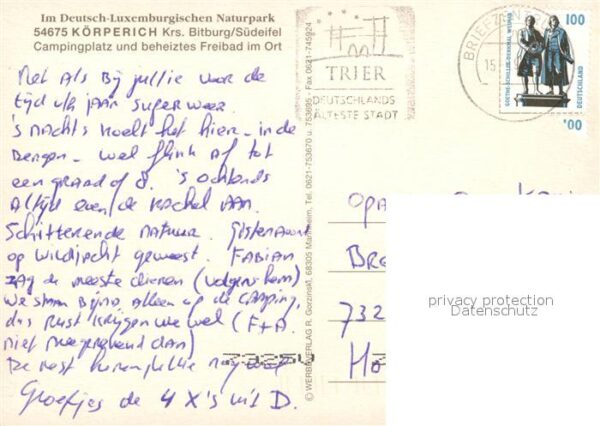 Im Deutsch-Luxemburgischen Naturpark
54675 KÖRPERICH Krs. Bitburg/Südeifel
Campingplatz und beheiztes Freibad im Ort
Net als bij jullie voor de
tijd v/h jaar super weer.
's nachts koelt het hier - in de
bergen - wel flink af tot
een graad of 8. 's ochtends
altijd even de kachel aan.
Schitterende natuur. Gisteravond
op wildjacht geweest. FABIAN
zag de meeste dieren (volgens hem)
We staan bijna alleen op de camping,
dus rust krijgen we wel (F+A
niet meegerekend dan)
De rest horen jullie nog wel
Groetjes de 4 X's uit D.
© WERBEVERLAG R. Gorzinski, 68305 Mannheim, Tel. 0621-753670 u. 753695 - Fax 0621-745924
TRIER
DEUTSCHLANDS
ÄLTESTE STADT
BRIEFZENTRUM
15.
GOETHE-SCHILLER-DENKMAL WEIMAR
100
DEUTSCHLAND
100
OPA
BRE
732
HO
privacy protection
Datenschutz